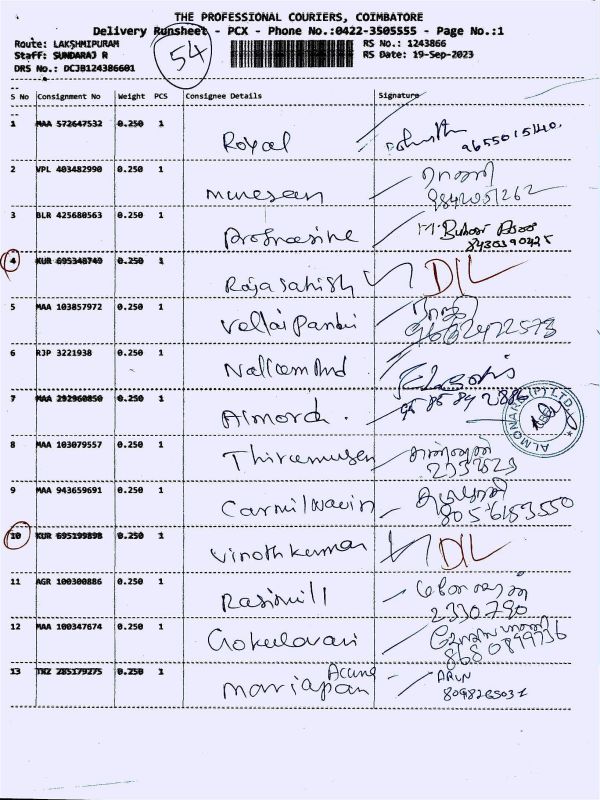 THE PROFESSIONAL COURIERS, COIMBATORE
Delivery Runsheet - PCX - Phone No.:0422-3505555 - Page No.:1
Route: LAKSHMIPURAM 54 RS No.: 1243866
Staff: SUNDARAJ R RS Date: 19-Sep-2023
DRS No.: DCJB124386601
S No Consignment No Weight PCS Consignee Details Signature
1 MAA 572647532 0.250 1
Royal 9655015140.
2 VPL 403482990 0.250 1
Munesan 9842051262
3 BLR 425680563 0.250 1
8430390425
4 KUR 695348749 0.250 1
Rajasahish DIL
5 MAA 103857972 0.250 1
Vellai Pandi
6 RJP 3221938 0.250 1
7 MAA 292960850 0.250 1
Almond. ALMONAR (P) LTD.
8 MAA 103079557 0.250 1
Thiramusen
9 MAA 943659691 0.250 1
8056153550
10 KUR 695199898 0.250 1
Vinothkumar DIL
11 AGR 100300886 0.250 1
Rasimill 2330790
12 MAA 100347674 0.250 1
8680899736
13 TNZ 285179275 0.250 1
Mariapan ARUN
8098265031